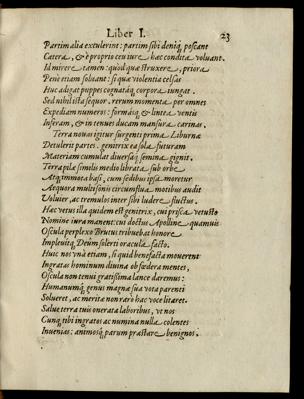 Liber I. 23
Partim alia extulerint: partim sibi deniq; poscant
Cætera, & è proprio ceu iure hac condita voluant.
Id mirere tamen: quod quæ struxere, priora
Penè etiam soluant: si quæ violentia celsas
Huc adigat puppes cognatáq; corpora iungat.
Sed nihil ista sequor. rerum momenta per omnes
Expediam numeros: formáiq; & lintea ventis
Inseram, & in tenues ducam mansura carinas.
Terra nouas igitur surgenti prima Liburnæ
Detulerit partes. genitrix ea sola futuram
Materiam cumulat diuersáq; semina gignit.
Terra pilæ similis medio librata sub orbe
Atq; immota basi, cum sedibus ipsa moretur
Æquora multisonis circumflua motibus audit
Voluier, ac tremulos inter sibi ludere fluctus.
Hac vetus illa quidem est genitrix, cui prisca vetusto
Nomine iura manent: cui doctus Apolline quamuis
Oscula perplexo Brutus tribuebat honore
Impleuitq; Deûm solerti oracula facto.
Huic nos vnà etiam, si quid benefacta mouerent
Ingratas hominum diuina ob fœdera mentes,
Oscula non tenui gratissima lance daremus:
Humanumq; genus magnæ sua vota parenti
Solueret, ac merita non raro hac voce litaret.
Salue terra tuis onerata laboribus, vt nos
Cunq; tibi ingratos ac numina nulla colentes
Inuenias: animosq; parum præstare benignos.